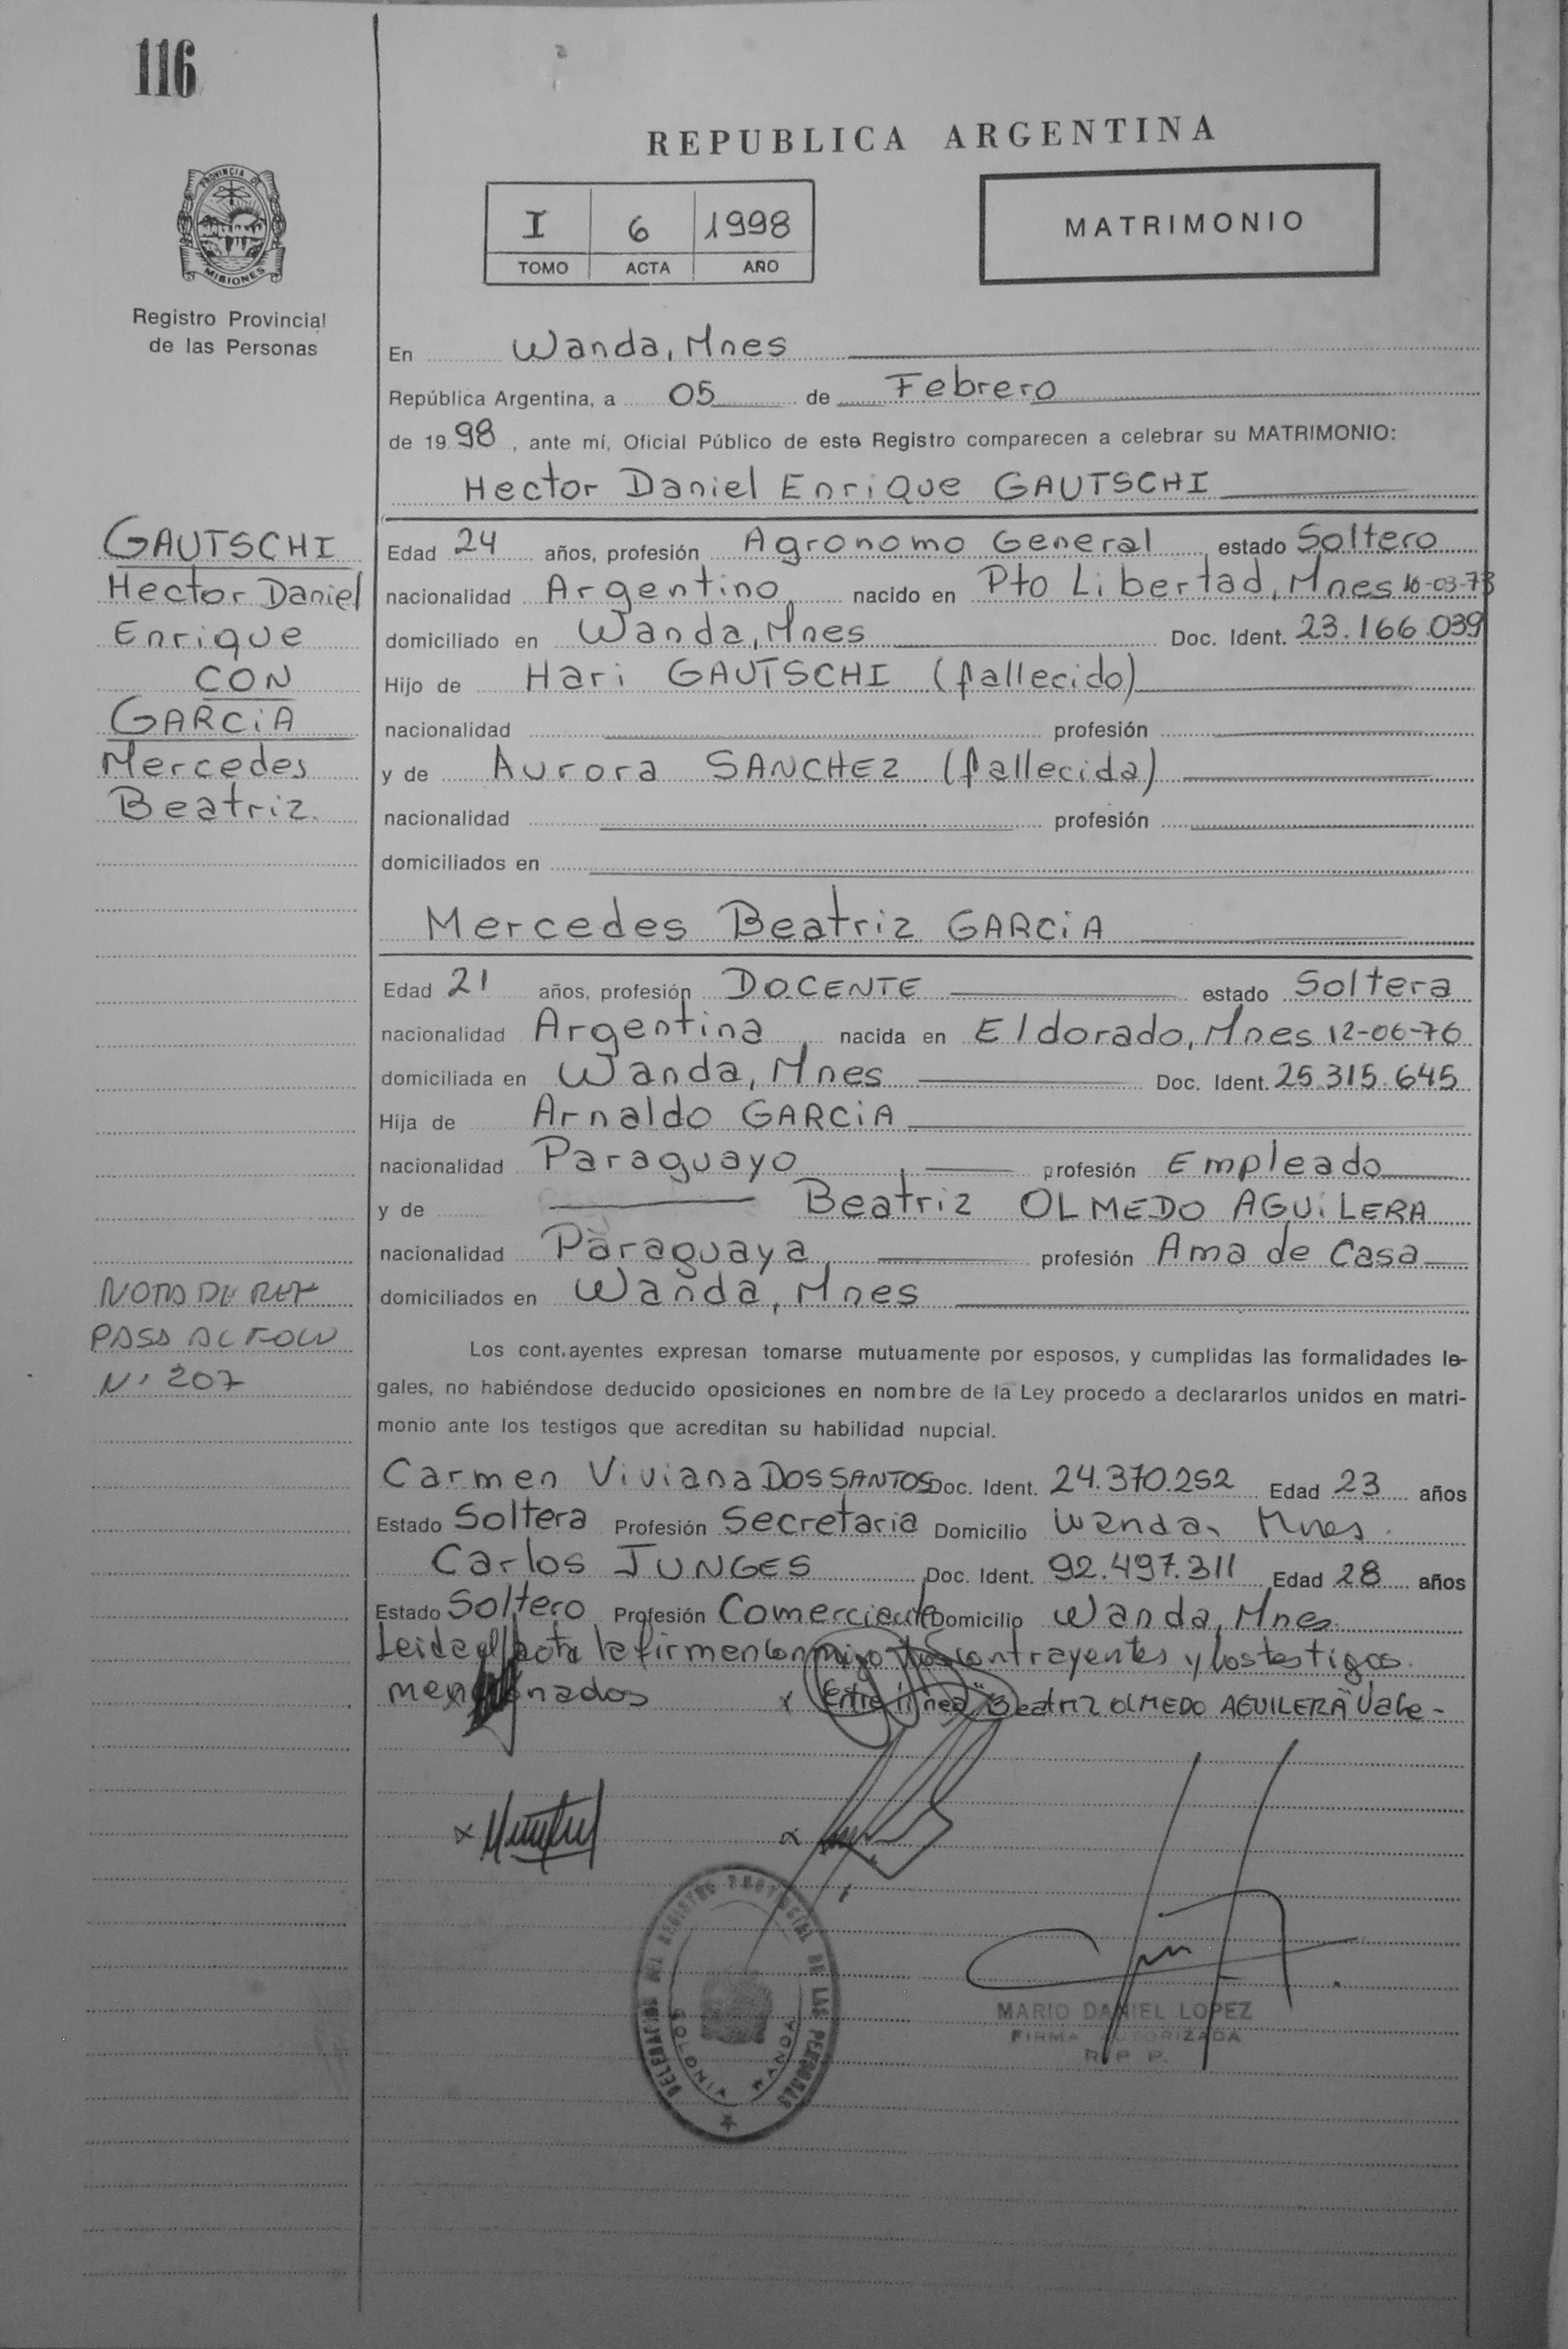 116
REPUBLICA ARGENTINA
PROVINCIA DE
MISIONES
Registro Provincial
de las Personas
I 6 1998
TOMO ACTA AÑO
MATRIMONIO
En Wanda, Mnes
República Argentina, a 05 de Febrero
de 1998, ante mí, Oficial Público de este Registro comparecen a celebrar su MATRIMONIO:
Hector Daniel Enrique GAUTSCHI
GAUTSCHI
Hector Daniel
Enrique
CON
GARCiA
Mercedes
Beatriz.
Edad 24 años, profesión Agronomo General estado Soltero
nacionalidad Argentino nacido en Pto Libertad, Mnes 16-03-73
domiciliado en Wanda, Mnes Doc. Ident. 23.166.039
Hijo de Hari GAUTSCHI (fallecido)
nacionalidad profesión
y de Aurora SANCHEZ (fallecida)
nacionalidad profesión
domiciliados en
Mercedes Beatriz GARCiA
Edad 21 años, profesión DOCENTE estado Soltera
nacionalidad Argentina nacida en Eldorado, Mnes 12-06-76
domiciliada en Wanda, Mnes Doc. Ident. 25.315.645
Hija de Arnaldo GARCiA
nacionalidad Paraguayo profesión Empleado
y de Beatriz OLMEDO AGUiLERA
nacionalidad Paraguaya profesión Ama de Casa
domiciliados en Wanda, Mnes
NOTA DE REF
PASA AL FOLIO
N° 207
Los cont.ayentes expresan tomarse mutuamente por esposos, y cumplidas las formalidades le-
gales, no habiéndose deducido oposiciones en nombre de la Ley procedo a declararlos unidos en matri-
monio ante los testigos que acreditan su habilidad nupcial.
Carmen Viviana DOS SANTOS Doc. Ident. 24.370.252 Edad 23 años
Estado Soltera Profesión Secretaria Domicilio Wanda, Mnes.
Carlos JUNGES Doc. Ident. 92.497.311 Edad 28 años
Estado Soltero Profesión Comerciante Domicilio Wanda, Mnes.
Leida el acta la firmen conmigo los contrayentes y los testigos
mencionados x Entre linea "Beatriz OLMEDO AGUILERA" Vale -
DELEGACION DEL REGISTRO PROVINCIAL DE LAS PERSONAS
COLONIA WANDA
MARIO DANIEL LOPEZ
FIRMA AUTORIZADA
R. P. P.